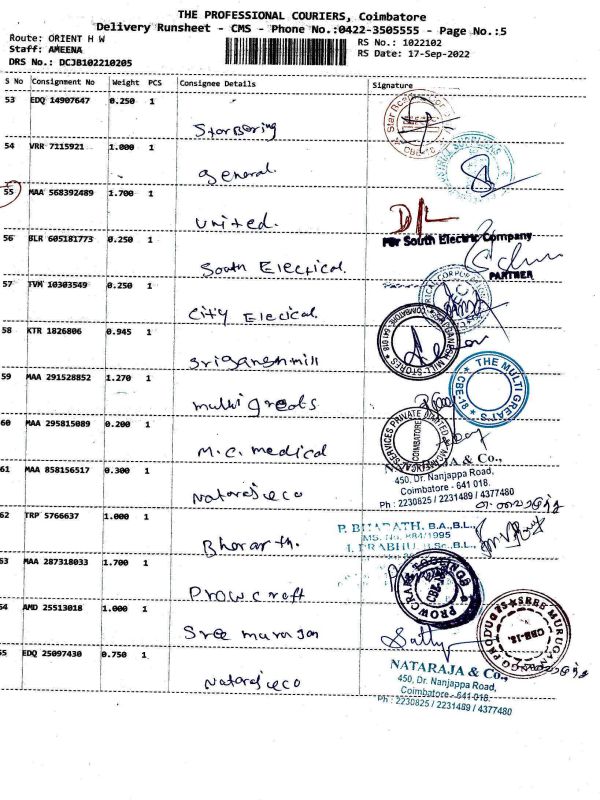 THE PROFESSIONAL COURIERS, Coimbatore
Delivery Runsheet - CMS - Phone No.:0422-3505555 - Page No.:5
Route: ORIENT H W
RS No.: 1022102
Staff: AMEENA
RS Date: 17-Sep-2022
DRS No.: DCJB102210205
S No Consignment No Weight PCS Consignee Details Signature
53 EDQ 14907647 0.250 1
StarBoring
54 VRR 7115921 1.000 1
General.
55 MAA 568392489 1.700 1
United. D/L
56 BLR 605181773 0.250 1
For South Electric Company
South Electrical. PARTNER
57 TVM 10303549 0.250 1
City Elecical.
58 KTR 1826806 0.945 1
Sriganeshmill
59 MAA 291528852 1.270 1
THE MULTI GREATS
CBE-18
multi greats
60 MAA 295815089 0.200 1
COIMBATORE
M.C. medical
61 MAA 858156517 0.300 1
NATARAJA & Co.,
450, Dr. Nanjappa Road,
Coimbatore - 641 018.
Ph : 2230825 / 2231489 / 4377480
62 TRP 5766637 1.000 1
P. BHARATH, B.A.,B.L.,
MS. No. 884/1995
I. PRABHU, B.Sc.,B.L.,
Bharath.
63 MAA 287318033 1.700 1
Prowcraft
64 AMD 25513018 1.000 1
Sree murugan
SREE MURUGAN
CBE-18.
65 EDQ 25097430 0.750 1
NATARAJA & Co.,
450, Dr. Nanjappa Road,
Coimbatore - 641 018.
Ph : 2230825 / 2231489 / 4377480